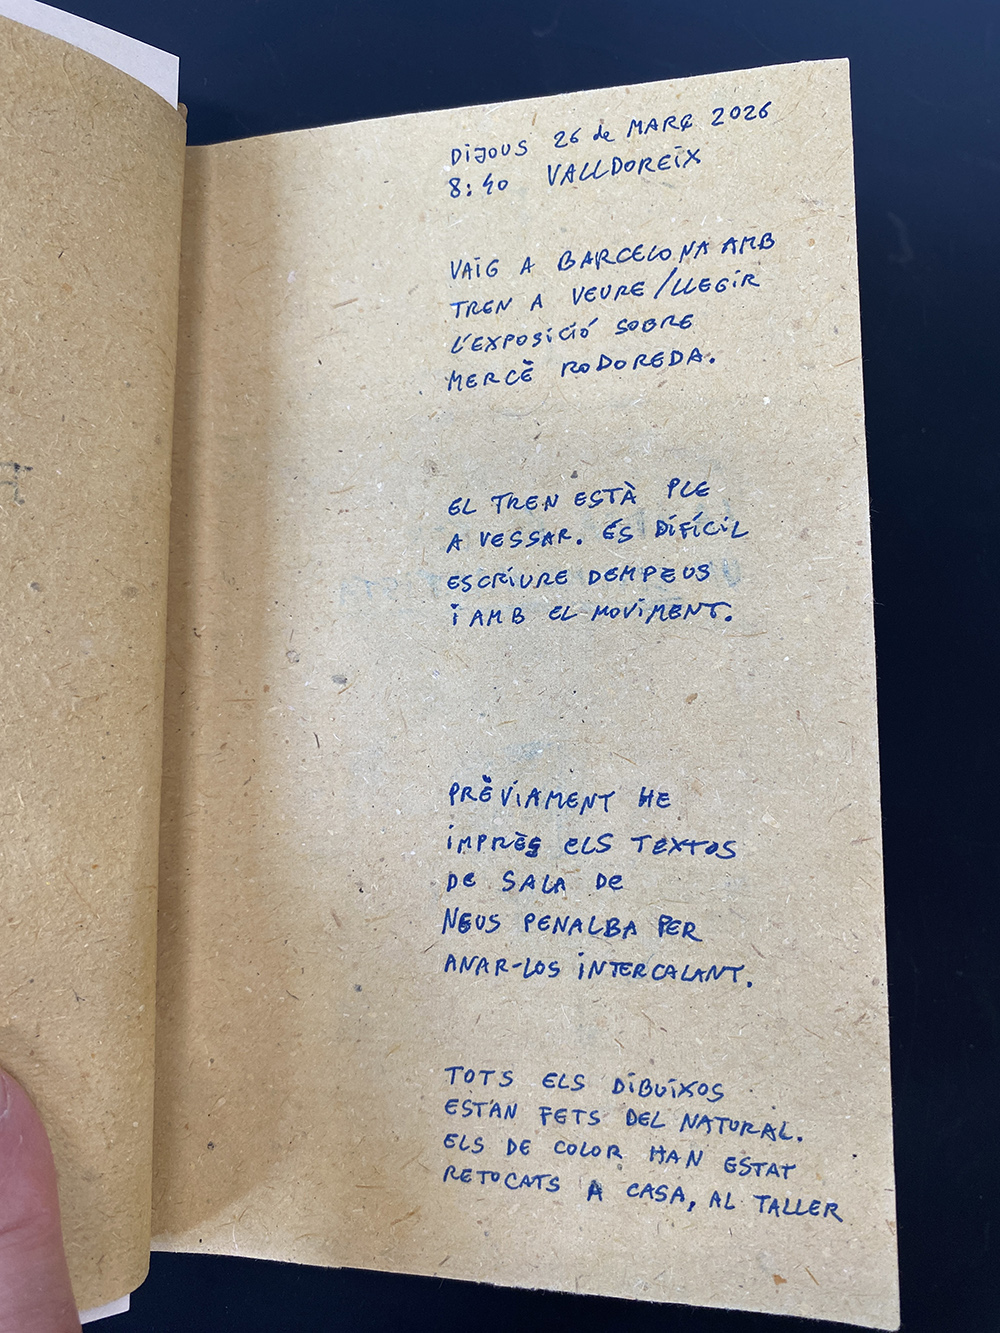 DIJOUS 26 de MARÇ 2026
8:40 VALLDOREIX
VAIG A BARCELONA AMB
TREN A VEURE/LLEGIR
L'EXPOSICIÓ SOBRE
MERCÈ RODOREDA.
EL TREN ESTÀ PLE
A VESSAR. ÉS DIFÍCIL
ESCRIURE DEMPEUS
I AMB EL MOVIMENT.
PRÈVIAMENT HE
IMPRÈS ELS TEXTOS
DE SALA DE
NEUS PENALBA PER
ANAR-LOS INTERCALANT.
TOTS ELS DIBUIXOS
ESTAN FETS DEL NATURAL.
ELS DE COLOR HAN ESTAT
RETOCATS A CASA, AL TALLER